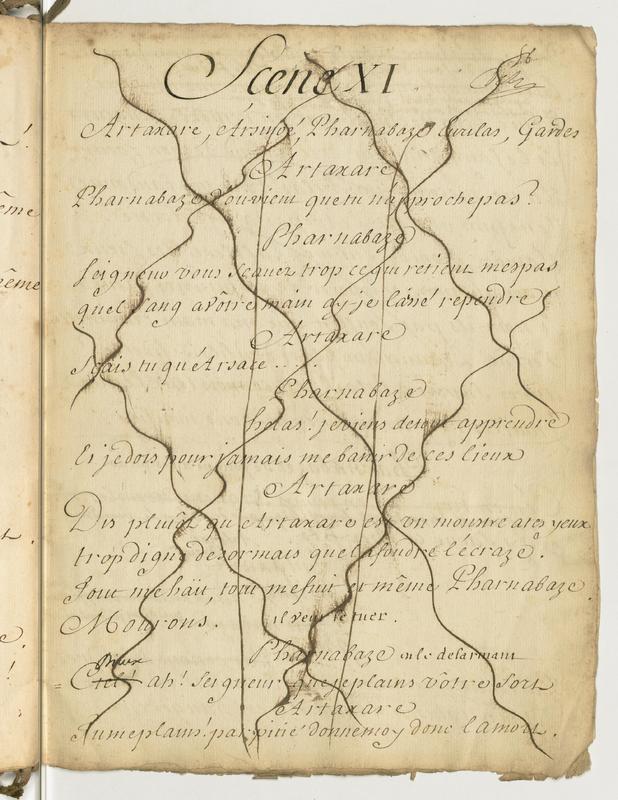 Scene XI
Artaxare, Arsinoé, Pharnabaze, Gardes
Artaxare
Pharnabaze d'ou vient que tu n'approche pas?
Pharnabaze
Seigneur vous scavez trop ce qui retient mes pas
quel sang a vôtre main ay-je laissé rependre
Artaxare
Scais tu qu'Arsace ....
Pharnabaze
helas! je viens de tout apprendre
Et je dois pour jamais me banir de ces lieux
Artaxare
Dis plutôt qu'Artaxare est un monstre a tes yeux
trop digne desormais que la foudre l'écraze.
Tout me hait, tout me fuit et même Pharnabaze.
Mourons. il veut se tuer.
Pharnabaze en le desarmant
Dieux
ah! Seigneur que je plains vôtre Sort
Artaxare
Tu me plains! par pitié donne moy donc la mort.
ême
ême